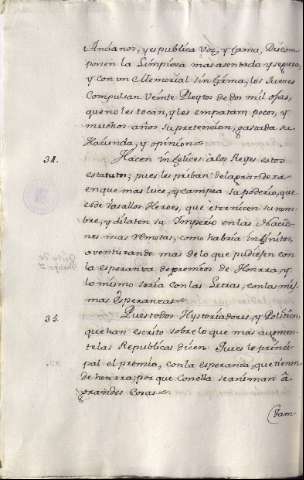 Ancianos, y es publica Voz, y fama, Discom
ponen la Limpieza mas asentada y segura,
y con un Memorial sin firma, los Jueces
Compulsan Veinte Pleytos de dos mil ofas,
que no les tocan, y les empatan pocos, y
muchos años su pretencion, gastada su
Hacienda, y opinion.
34. Hacen infelices a los Reyes estos
estatutos; pues les priban de la prenda
en que mas luce, y campea la poderio, que
es de Vasallos Heroes, que eternicen su nom
bre, y dilaten su Imperio en las Nacio
nes mas remotas, como habria infinitos,
aventurando mas de lo que pudiesen con
la esperanza de premios de Honrra, y
lo mismo seria con las Letras, con las mis
mas Esperanzas.
35. Pues todos Hystoriadores, y Politicos,
que han escrito sobre lo que mas aumen
te las Republicas dicen Jues le princi
pal el premio, con la esperanza, que tienen
de honrra; por que con ella se animan â
grandes Cosas.
(Tam